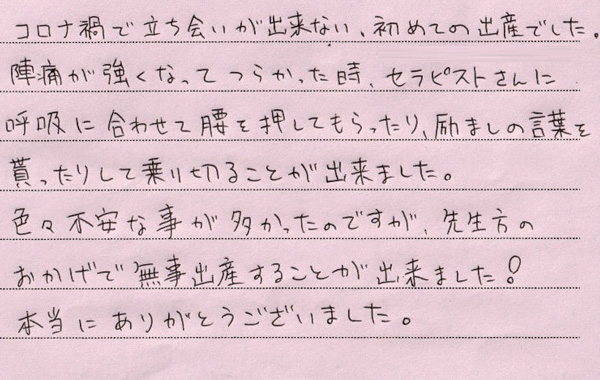 コロナ禍で立ち会いが出来ない、初めての出産でした。
陣痛が強くなってつらかった時、セラピストさんに
呼吸に合わせて腰を押してもらったり、励ましの言葉を
貰ったりして乗り切ることが出来ました。
色々不安な事が多かったのですが、先生方の
おかげで無事出産することが出来ました!
本当にありがとうございました。